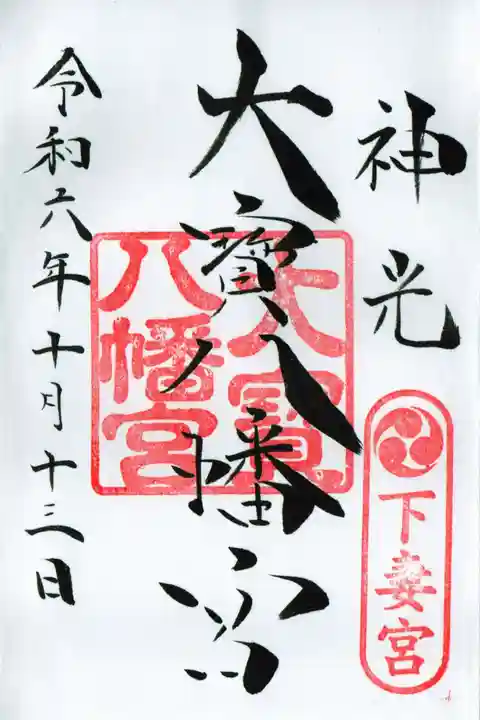 神光
下妻宮
大寳八幡宮
大寳
八幡宮
令和六年十月十三日